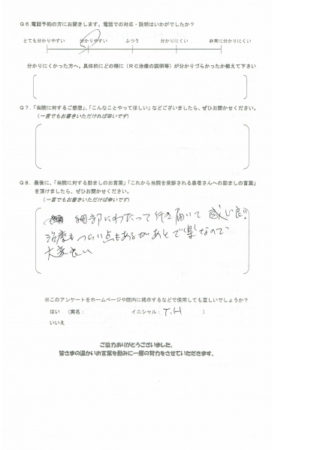 Q6 電話予約の方にお聞きします。電話での対応・説明はいかがでしたか？
とても分かりやすい 分かりやすい ふつう 分かりにくい 非常に分かりにくい
分かりにくかった方へ。具体的にどの様に（ＲＣ治療の説明等）が分かりづらかったか教えて下さい
Q7.「当院に対するご感想」、「こんなことやってほしい」などございましたら、ぜひお聞かせください。
（一言でもお書きいただければ幸いです）
Q8. 最後に、「当院に対する励ましのお言葉」「これから当院を来院される患者さんへの励ましの言葉」
を頂けましたら、ぜひお聞かせください。
（一言でもお書きいただけますと幸いです）
細部にわたって行き届いて感じ良い
治療もつらい点もあるがあとで楽なので
大変良い
※このアンケートをホームページや院内に掲示するなどで使用しても宜しいでしょうか？
はい （実名： イニシャル： T.H ）
いいえ
ご協力ありがとうございました。
皆さまの温かいお言葉を励みに一層の努力をさせていただきます。